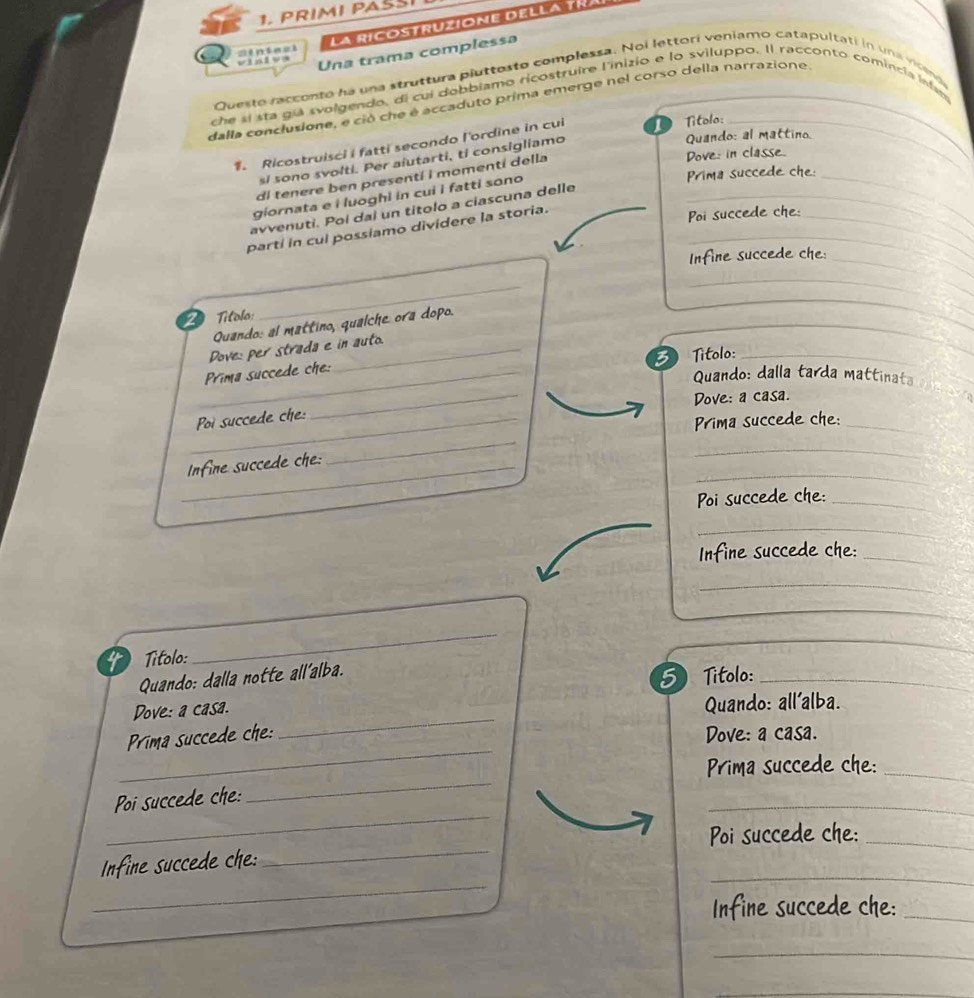 1. PRIMI PASSI
LA RICOSTRUZIONE DELLA
Sintesi
visiva
Una trama complessa
Questo racconto ha una struttura piuttosto complessa. Noi lettori veniamo catapultati in una vicenda
che si sta già svolgendo, di cui dobbiamo ricostruire l'inizio e lo sviluppo. Il racconto comincia infatti
dalla conclusione, e ciò che è accaduto prima emerge nel corso della narrazione.
1. Ricostruisci i fatti secondo l'ordine in cui
si sono svolti. Per aiutarti, ti consigliamo
di tenere ben presenti i momenti della
giornata e i luoghi in cui i fatti sono
avvenuti. Poi dai un titolo a ciascuna delle
parti in cui possiamo dividere la storia.
1 Titolo:
Quando: al mattino.
Dove: in classe.
Prima succede che:
Poi succede che:
Infine succede che:
2 Titolo:
Quando: al mattino, qualche ora dopo.
Dove: per strada e in auto.
Prima succede che:
Poi succede che:
Infine succede che:
3 Titolo:
Quando: dalla tarda mattinata
Dove: a casa.
Prima succede che:
Poi succede che:
Infine succede che:
4 Titolo:
Quando: dalla notte all'alba.
Dove: a casa.
Prima succede che:
Poi succede che:
Infine succede che:
5 Titolo:
Quando: all'alba.
Dove: a casa.
Prima succede che:
Poi succede che:
Infine succede che: